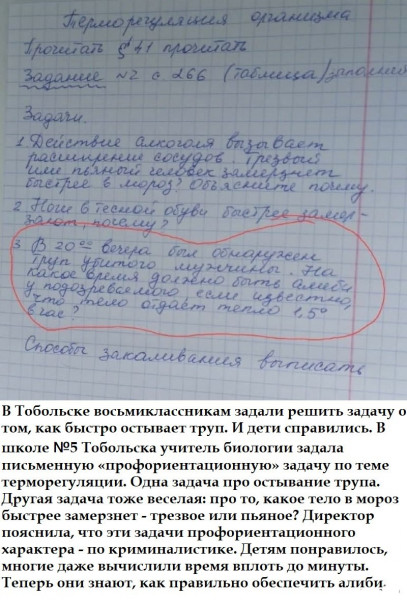 Терморегуляция организма
Прочитать § 41 прочитать
Задание №2 с 266 (таблица) заполнить
Задачи.
1. Действие алкоголя вызывает
расширение сосудов. Трезвый
или пьяный человек замерзнет
быстрее в мороз? Объясните почему.
2. Ноги в тесной обуви быстрее замер-
зают, почему?
3. В 20⁰⁰ вечера был обнаружен
труп убитого мужчины. На
какое время должно быть алиби
у подозреваемого, если известно,
что тело отдаёт тепло 1,5°
в час?
Способы закаливания выписать
В Тобольске восьмиклассникам задали решить задачу о
том, как быстро остывает труп. И дети справились. В
школе №5 Тобольска учитель биологии задала
письменную «профориентационную» задачу по теме
терморегуляции. Одна задача про остывание трупа.
Другая задача тоже веселая: про то, какое тело в мороз
быстрее замерзнет - трезвое или пьяное? Директор
пояснила, что эти задачи профориентационного
характера - по криминалистике. Детям понравилось,
многие даже вычислили время вплоть до минуты.
Теперь они знают, как правильно обеспечить алиби